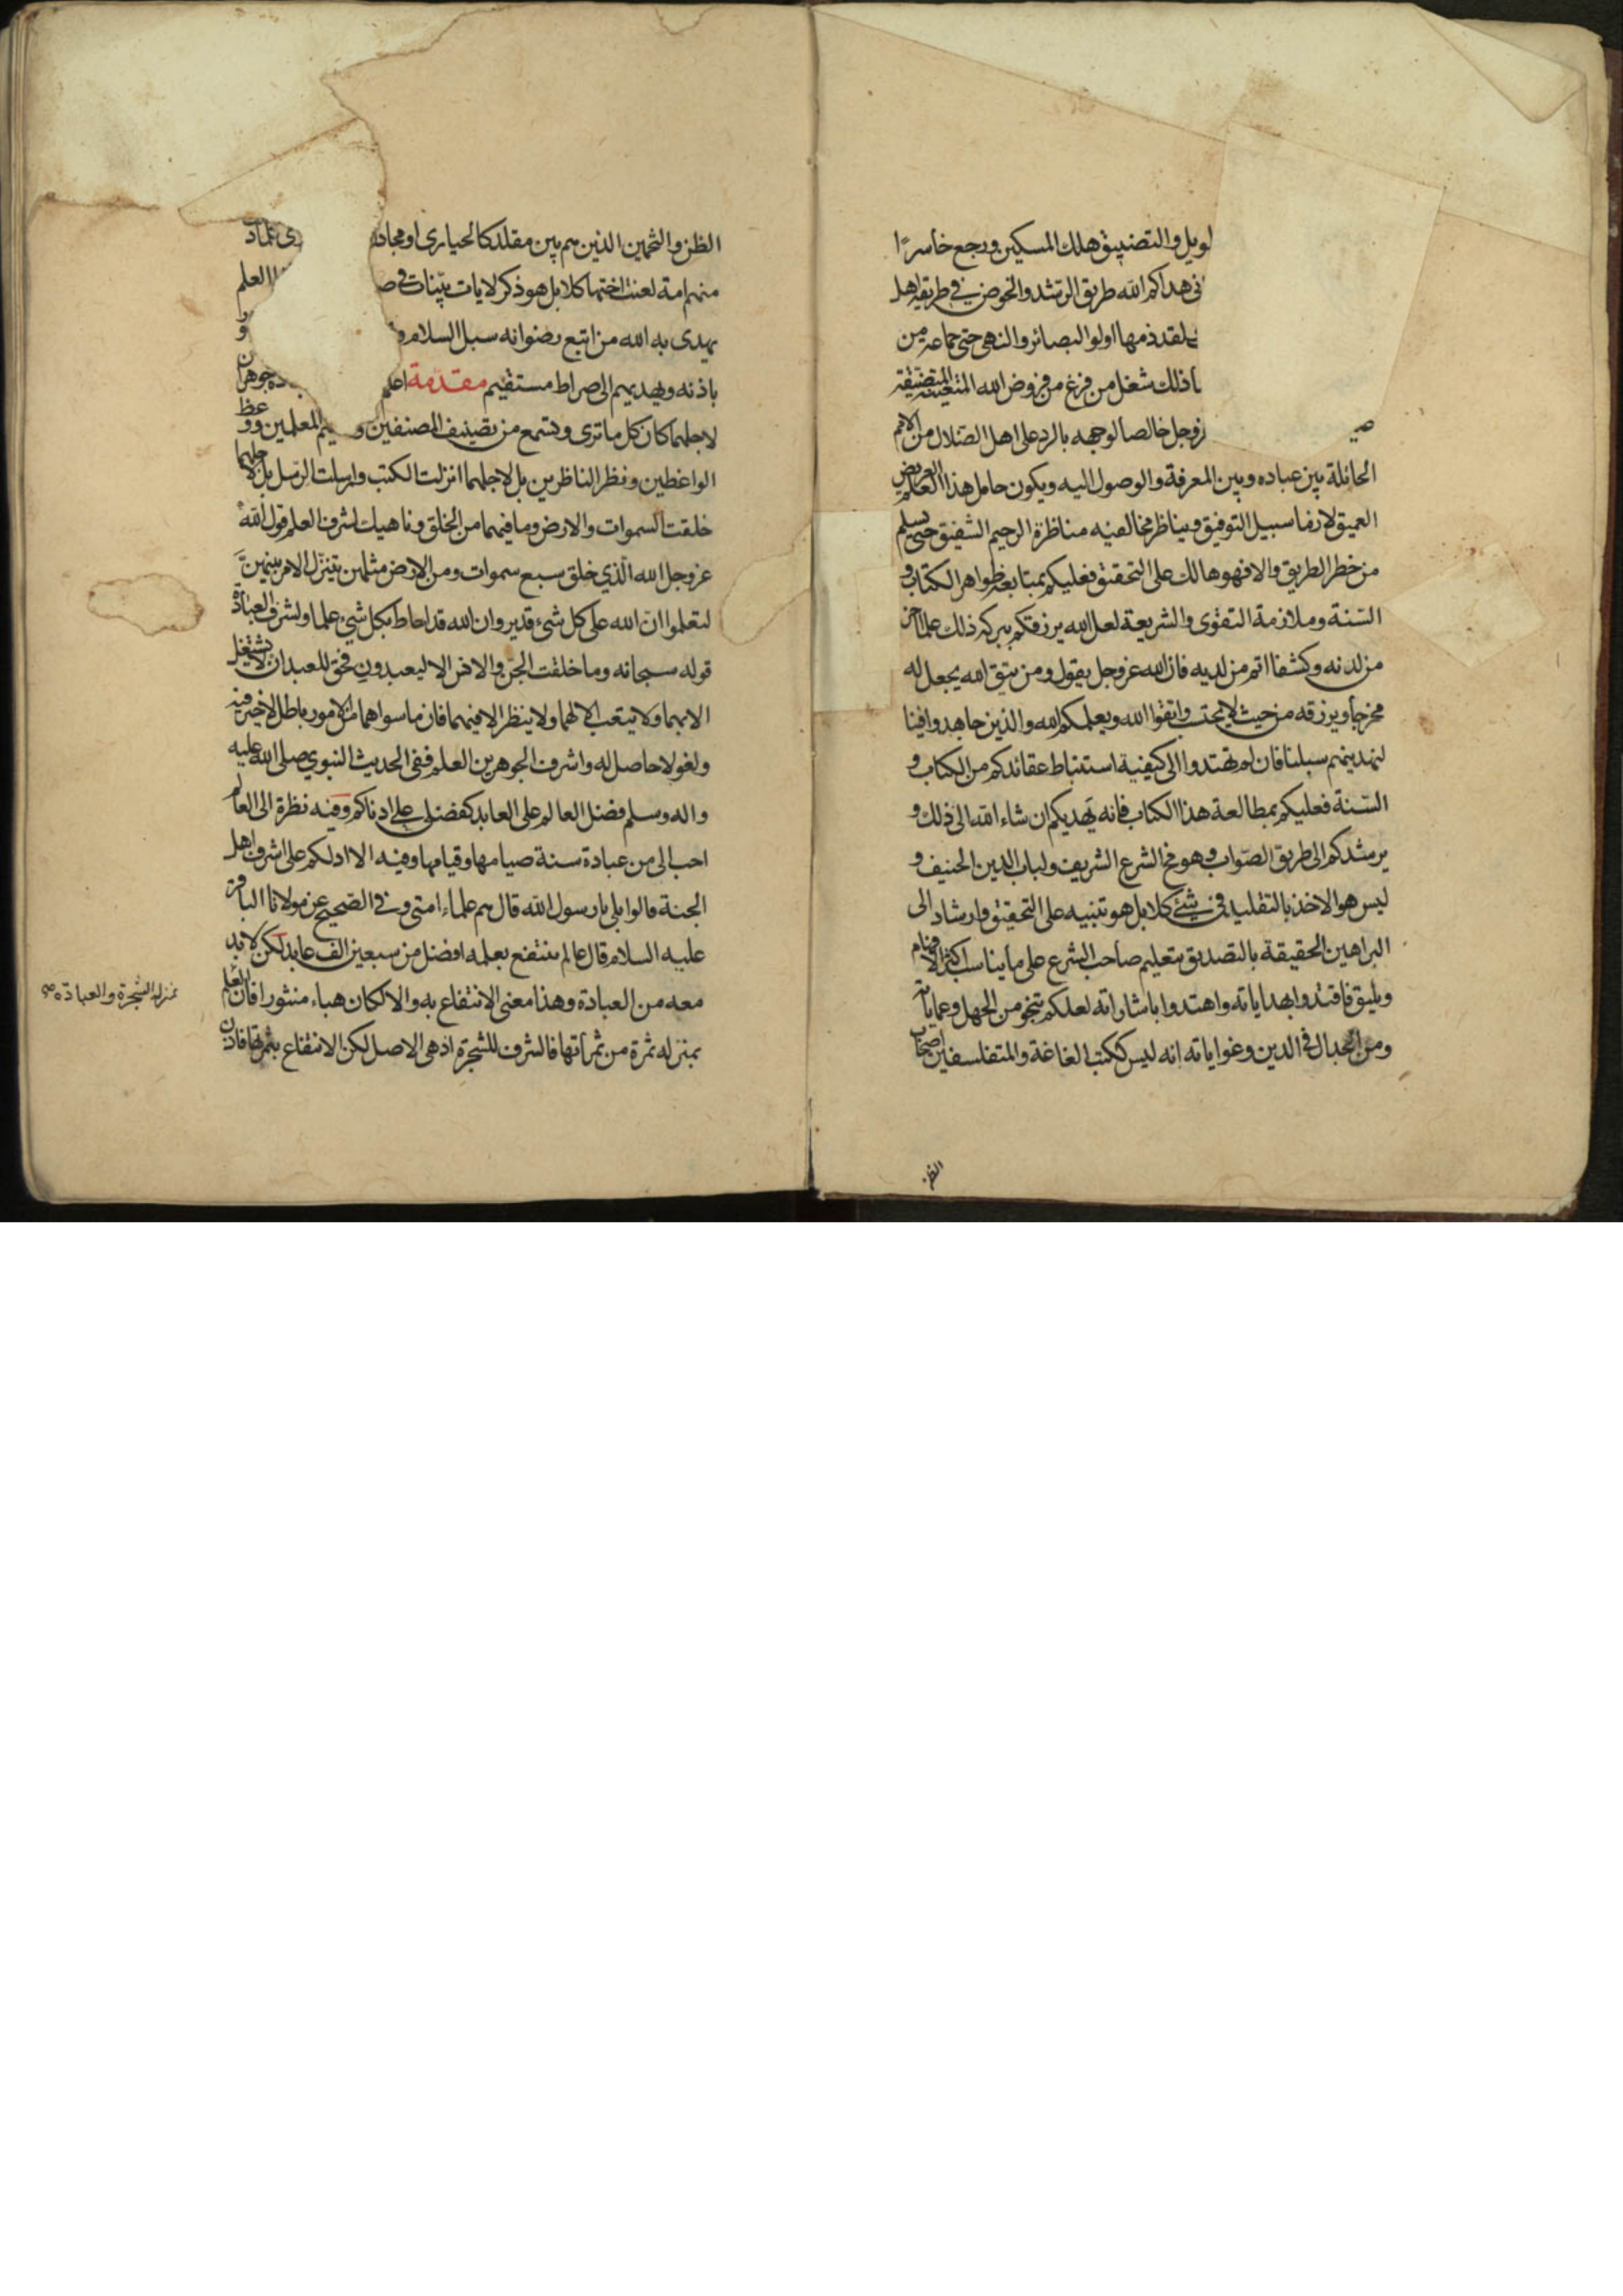 لويل والتضييق هلك المسكين ورجع خاسرًا
نى هداكم الله طريق الرشد والخوض فى طريقة اهل
لقد ذمها اولوا البصائر والنهى حتى جماعة من
ذلك شغل من فرغ من فروض الله المتعينة المتضيقة
زوجل خالصا لوجهه بالرد على اهل الضلال من الامم
الحائلة بين عباده وبين المعرفة والوصول اليه ويكون حامل هذا العلم العريض
العميق لازما سبيل التوفيق ويناظر مخالفيه مناظرة الرحيم الشفيق حتى يسلم
من خطر الطريق والا فهو هالك على التحقيق فعليكم بمتابعة ظواهر الكتاب و
السنة وملازمة التقوى والشريعة لعل الله يرزقكم ببركة ذلك علما اخر
من لدنه وكشفا اتم من لديه فان الله عز وجل يقول ومن يتق الله يجعل له
مخرجا ويرزقه من حيث لا يحتسب واتقوا الله ويعلمكم الله والذين جاهدوا فينا
لنهدينهم سبلنا فان لم تهتدوا الى كيفية استنباط عقائدكم من الكتاب و
السنة فعليكم بمطالعة هذا الكتاب فانه يهديكم ان شاء الله الى ذلك و
يرشدكم الى طريق الصواب وهو مخ الشرع الشريف ولباب الدين الحنيف و
ليس هو الاخذ بالتقليد فى شئ كلا بل هو تنبيه على التحقيق وارشاد الى
البراهين الحقيقة بالتصديق بتعليم صاحب الشرع على ما يناسب اكثر الافهام
ويليق فاقتدوا بهداياته واهتدوا باشاراته لعلكم تنجو من الجهل وعماياته
ومن الجدال فى الدين وغواياته انه ليس ككتب الغاغة والمتفلسفين اصحاب
الظن
الظن والتخمين الذين هم بين مقلد كالحيارى او مجادل
منهم امة لعنت اختها كلا بل هو ذكر لايات بينات فى ص العلم
يهدى به الله من اتبع رضوانه سبل السلام و
باذنه ويهديهم الى صراط مستقيم مقدمة اعلم جوهران
لاجلهما كان كل ما ترى وتسمع من تصنيف المصنفين و المعلمين ووعظ
الواعظين ونظر الناظرين بل لاجلهما انزلت الكتب وارسلت الرسل بل لاجلهما
خلقت السموات والارض وما فيهما من الخلق وناهيك لشرف العلم قول الله
عز وجل الله الذي خلق سبع سموات ومن الارض مثلهن يتنزل الامر بينهن
لتعلموا ان الله على كل شىء قدير وان الله قد احاط بكل شىء علما ولشرف العبادة
قوله سبحانه وما خلقت الجن والانس الا ليعبدون فحق للعبد ان لا يشتغل
الا بهما ولا يتعب الا لهما ولا ينظر الا فيهما فان ما سواهما من الامور باطل لا خير فيه
ولغو لا حاصل له واشرف الجوهرين العلم ففى الحديث النبوي صلى الله عليه
واله وسلم فضل العالم على العابد كفضلى على ادناكم وفيه نظرة الى العالم
احب الى من عبادة سنة صيامها وقيامها وفيه الا ادلكم على اشرف اهل
الجنة قالوا بلى يا رسول الله قال هم علماء امتى وفى الصحيح عن مولانا الباقر
عليه السلام قال عالم ينتفع بعلمه افضل من سبعين الف عابد لكن لا بد
معه من العبادة وهذا معنى الانتفاع به والا لكان هباء منثورا فان العلم
بمنزلة الشجرة والعبادة صح
بمنزلة ثمرة من ثمراتها فالشرف للشجرة اذ هى الاصل لكن الانتفاع بثمرتها فاذن